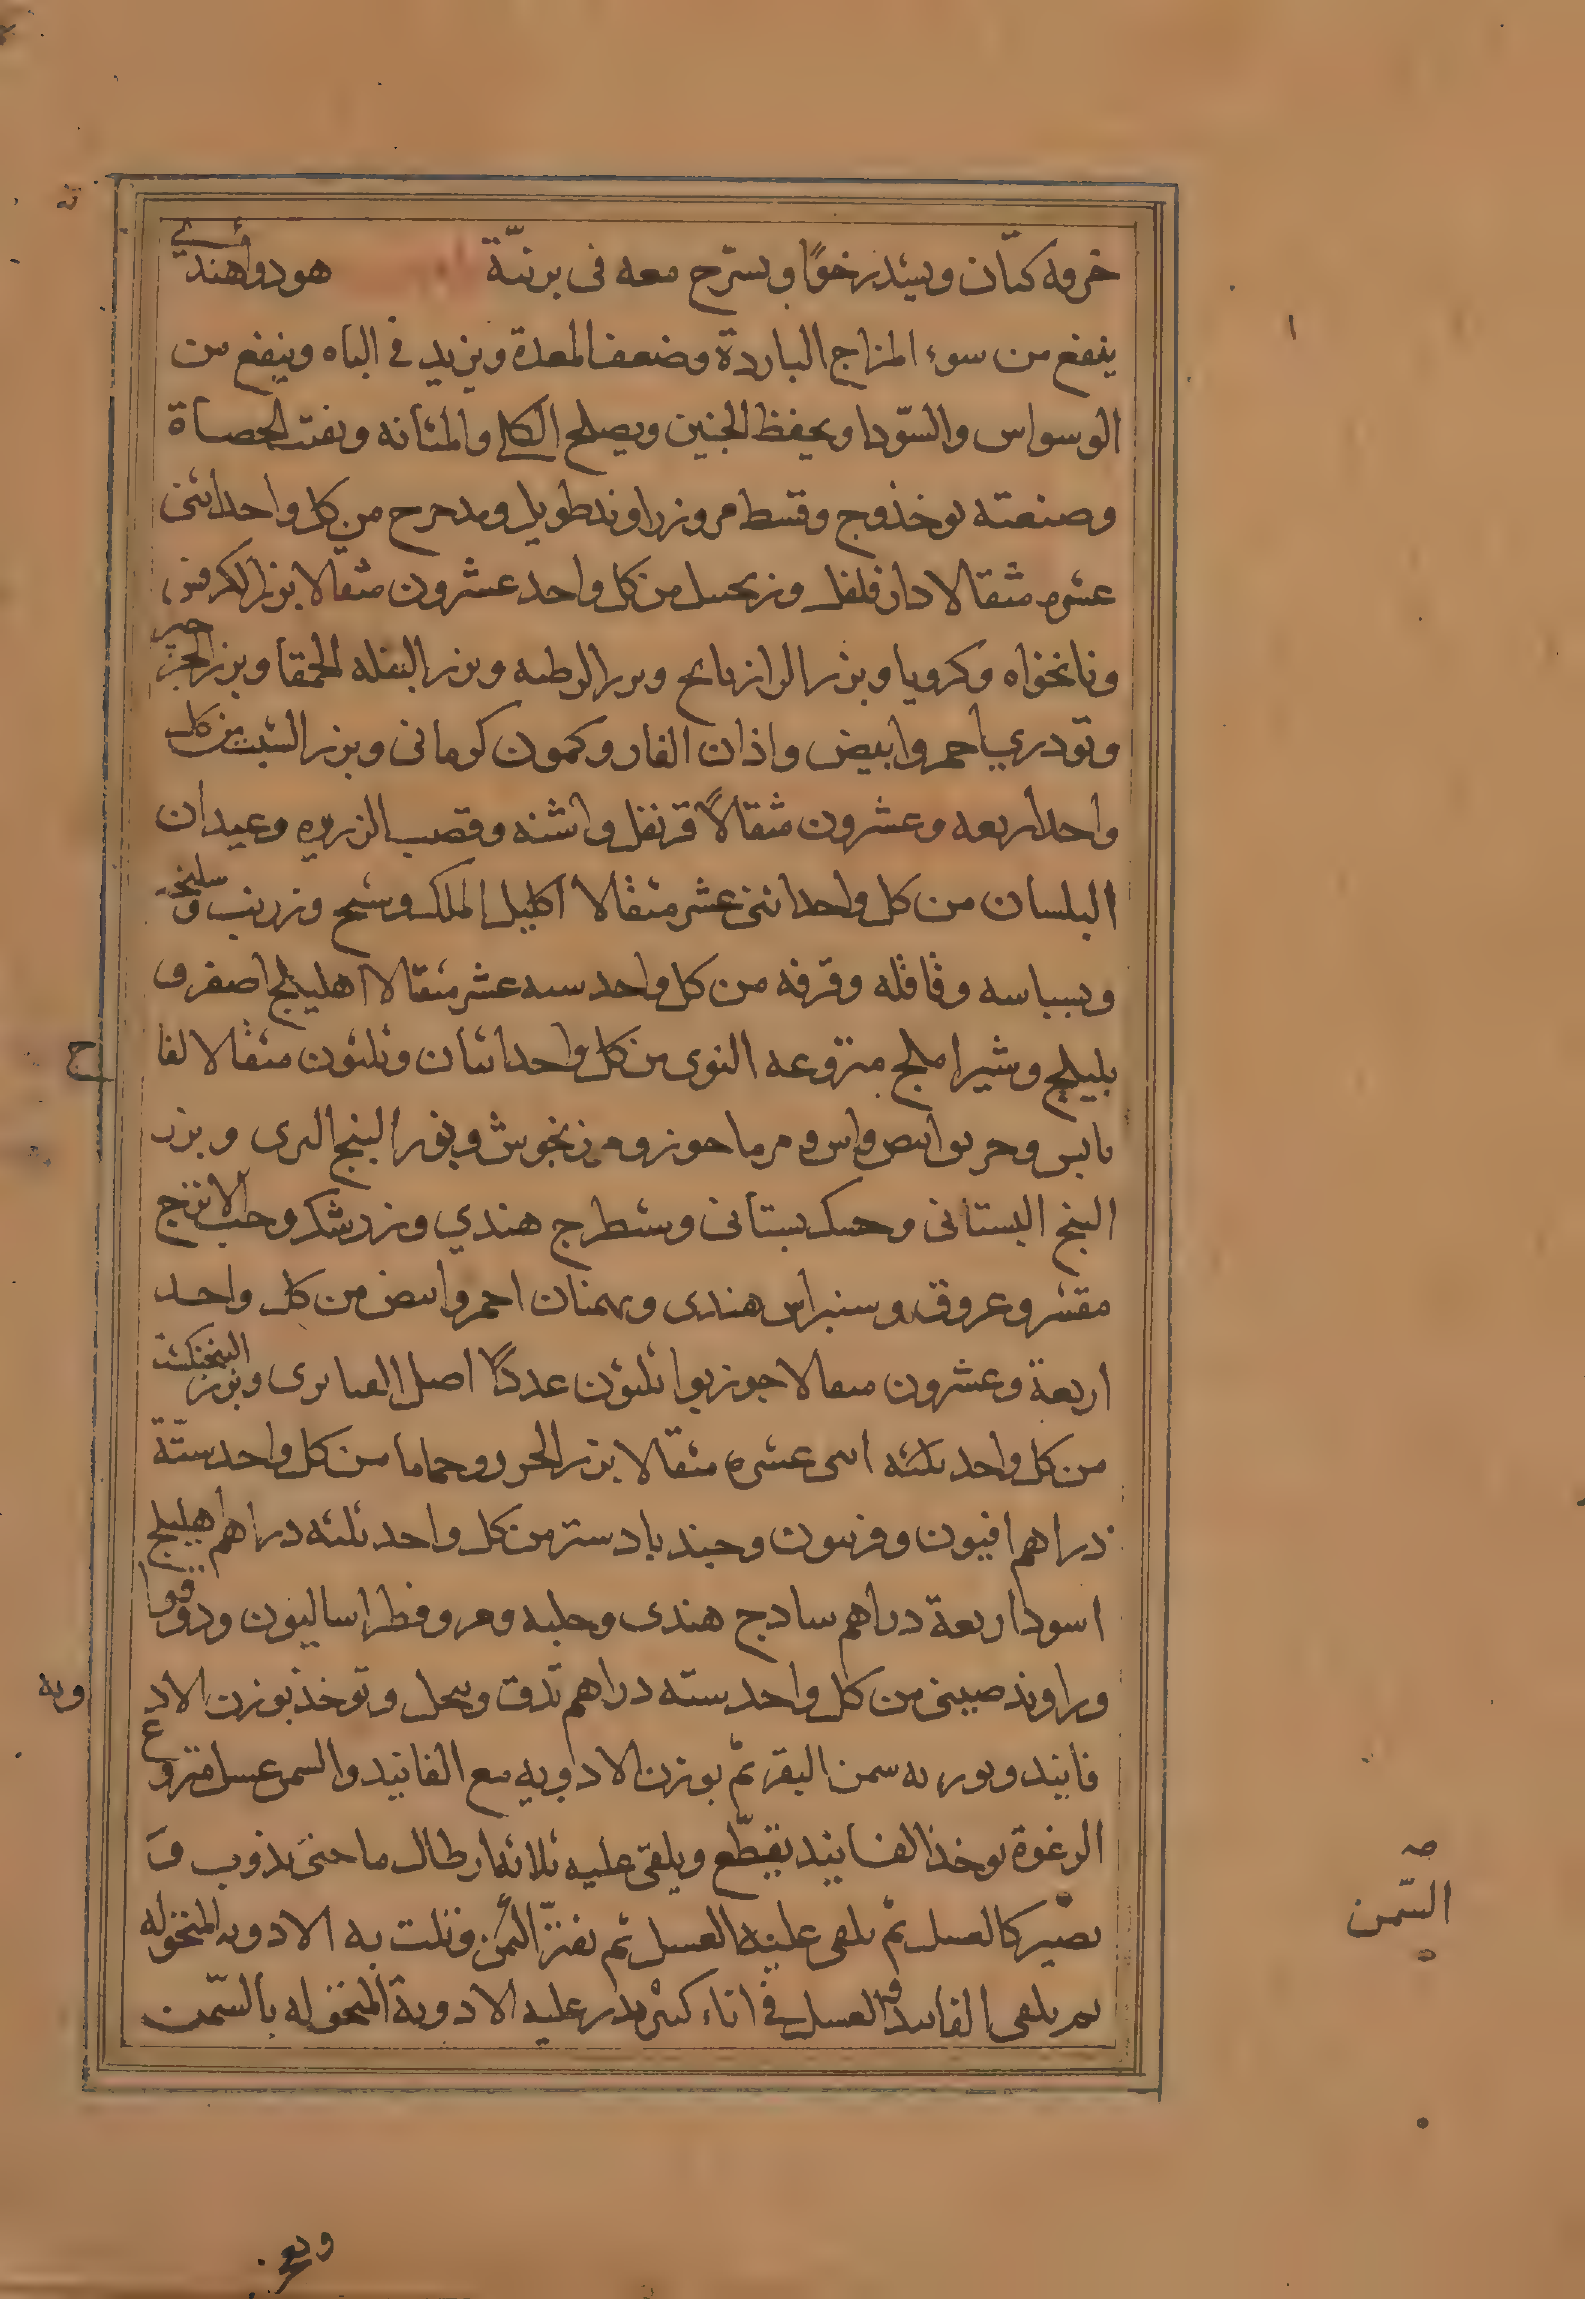 خرقه كتّان ويشد رخوًا ويسرّح معه فى برنيّة هو دوا هندي
ينفع من سوء المزاج الباردة وضعف المعدة ويزيد فى الباه وينفع من
الوسواس والسّودا ويحفظ الجنين ويصلح الكلى والمثانه ويفتت الحصاة
وصنعته يوخذ وج وقسط مر وزراوند طويل ومدحرج من كل واحد اثنى
عشره مثقالا دار فلفل وزنجبيل من كل واحد عشرون مثقالا بزر الكرفس
ونانخواه وكرويا وبزر الرازيانج وبزر الرطبه وبزر البقله الحمقا وبزر
وتودري احمر وابيض واذان الفار وكمون كرمانى وبزر الشبت من كل
واحد اربعه وعشرون مثقالاً قرنفل واشنه وقصب الزريره وعيدان
البلسان من كل واحد اثنى عشر مثقالا اكليل الملك وشيح وزرنب وسليخه
وبسباسه وقاقله وقرفه من كل واحد سته عشر مثقالا اهليلج اصفر و
بليلج وشير املج منزوعه النوى من كل واحد اثنان وثلثون مثقالا لفا
يابس وخربق ابيض واس ومرماحوز ومرزنجوش وبزر البنج البرى وبزر
البنج البستانى وحسك بستانى وشطرج هندي وزرشك وحب الاترج
مقشر وعروق وسنبراس هندى وبهمنان احمر وابيض من كل واحد
اربعة وعشرون مثقالا جوز بوا ثلثون عددًا اصل وبزر البنجنكشت
من كل واحد ثلثه اثنى عشره مثقالا بزر وحماما من كل واحد ستّة
دراهم افيون وفربيون وجند بادستر من كل واحد ثلثه دراهم هليلج
اسود اربعة دراهم سادج هندى وحلبه ومر وفطراساليون ودوقوا
وراوند صينى من كل واحد سته دراهم تدق وتنخل وتوخذ بوزن الادويه
فانيد وبوزنه سمن البقر ثم بوزن الادويه مع الفانيد والسمن عسل منزوع
الرغوة يوخذ الفانيد يقطّع ويلقى عليه ثلاثه ارطال ما حتى يذوب و
يصير كالعسل ثم يلقى عليه العسل ثم يفترّ السّمن وتلت به الادويه المنخوله
ثم يلقى الفانيد والعسل فى اناء كبير يذر عليه الادوية المنخوله بالسّمن
صه
السّمن